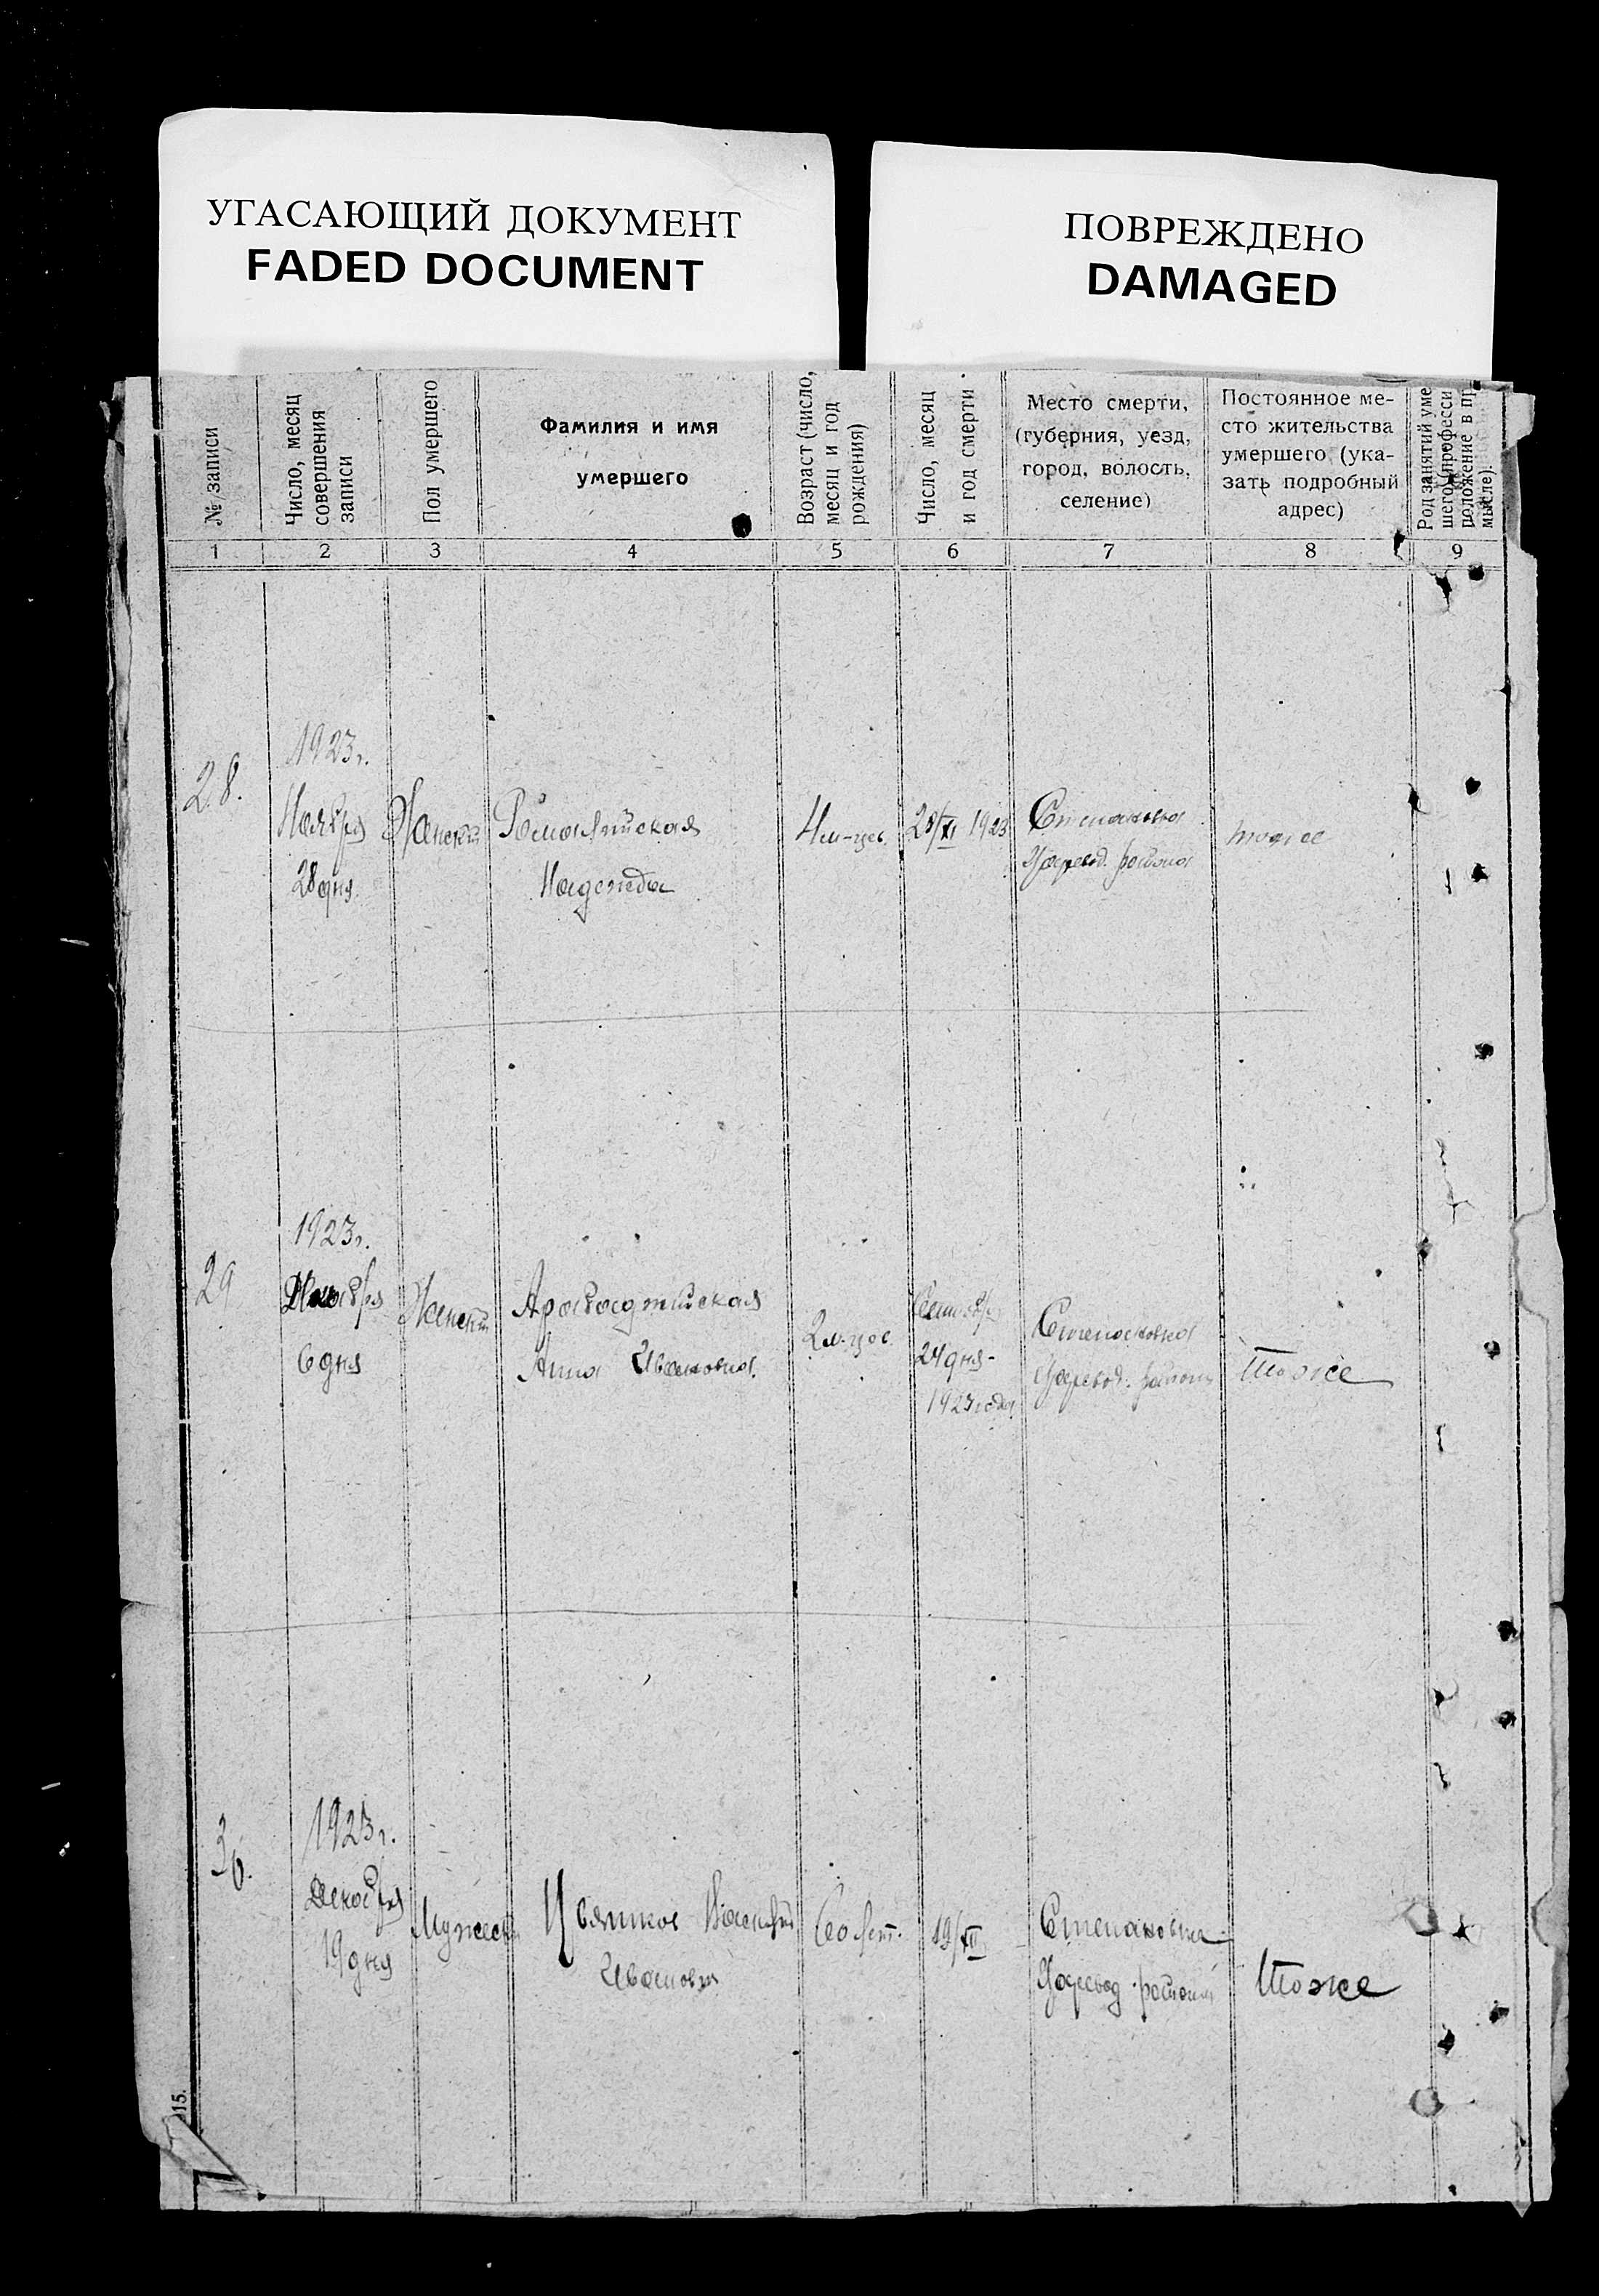 УГАСАЮЩИЙ ДОКУМЕНТ
FADED DOCUMENT
ПОВРЕЖДЕНО
DAMAGED
№ записи
Число, месяц
совершения
записи
Пол умершего
Фамилия и имя
умершего
Возраст (число,
месяц и год
рождения)
Число, месяц
и год смерти
Место смерти,
(губерния, уезд,
город, волость,
селение)
Постоянное ме-
сто жительства
умершего (ука-
зать подробный
адрес)
Род занятий уме
шего (професси
положение в пр
мысле).
1 2 3 4 5 6 7 8 9
28.
1923г.
Ноября
28 дня
Женский
Надежда
4 м-цев
28/XI 1923
Степановка
района
тоже
29
1923г.
6 дня
Женский
Анна Ивановна.
2 м-цев
24 дня-
1923 года
Степановка
района
Тоже
30.
1923г.
Декабря
19 дня
Мужеск
Василий
Иванович
60 лет.
19/XII
Степановка
района
Тоже
015.